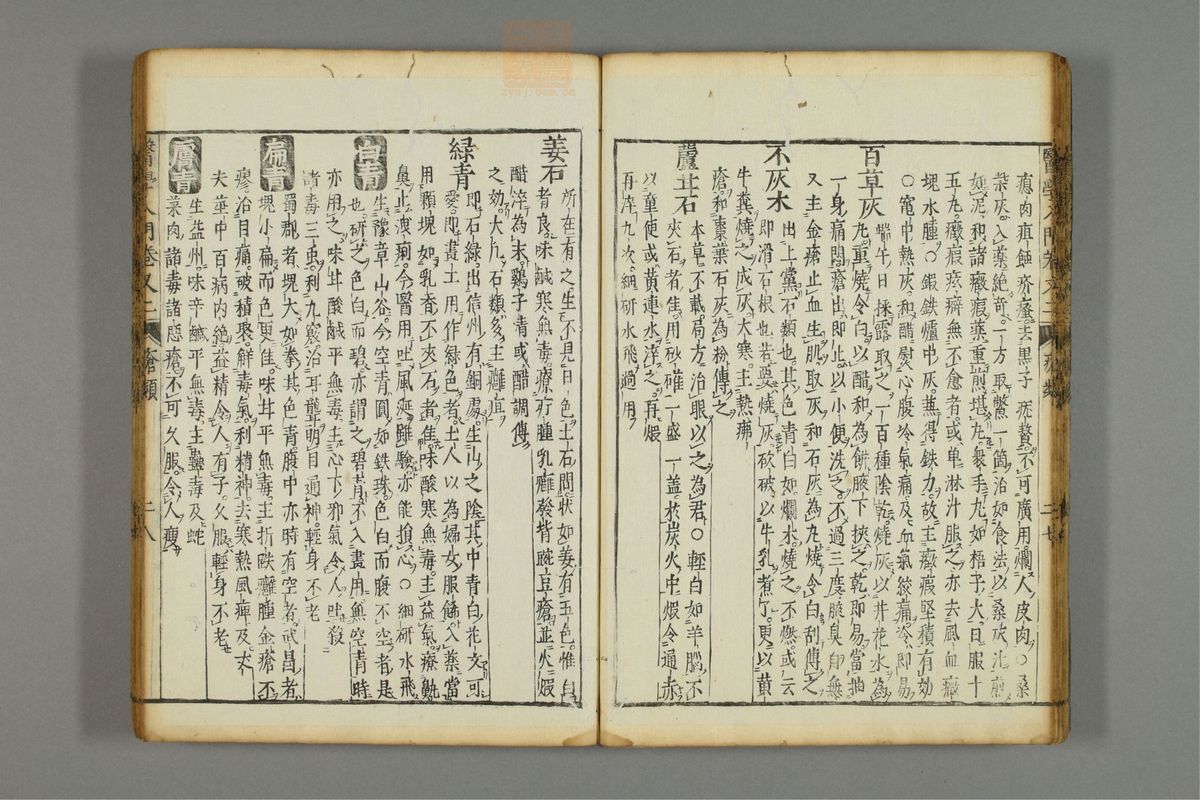 瘜肉疽蝕疥瘙去黒子疣贅不可廣用爛人皮肉○桑
柴灰入藥絶竒一方取鱉一箇治如食法以桑灰汁煎
如泥和諸癥瘕藥重煎堪丸衆手丸如梧子大日服十
五丸癥瘕痃癖無不愈者或単淋汁服之亦去風血癥
塊水腫○鍜鉄爐中灰兼得鉄力故主癥瘕堅積有効
○竃中熱灰和醋熨心腹冷氣痛及血氣絞痛冷即易
百草灰 端午日採露取之一百種陰乾燒灰以井花水為
丸重燒令白以醋和為餅腋下挾之乾即易當抽
一身痛悶瘡出即止以小便洗之不過三度腋臭卽無
又主金瘡止血生肌取灰和石灰為丸燒令白刮傅之
不灰木 出上黨石類也其色青白如爛木燒之不燃或云
即滑石根也若要燒灰砍破以牛乳煮了更以黄
牛糞燒之成灰大寒主熱痱
瘡和棗葉石灰為粉傅之
本草不載局方治眼以之為君○輕白如羊腦不
夾石者佳用砂確一一盛一盖於炭火中煆令通赤
以童便或黄連水淬之再煆
再淬九次細研水飛過用
醫學入門卷又二 瘡類 二七
姜石 所在有之生不見日色土石間狀如姜有五色惟白
者良味鹹寒無毒療疔腫乳癰發背豌豆瘡並火煆
醋淬為末鷄子清或醋調傅
之効大凡石類多主癰疽
緑青 即石緑出信州有銅處生山之陰其中青白花文可
愛即畫士用作緑色者土人以為婦女服餙入藥當
用顆塊如乳香不夾石者佳味酸寒無毒主益氣療鼽
鼻止洩痢今醫用吐風涎雖驗亦能損心○細研水飛
白青 生豫章山谷今空青圓如鉄珠色白而腹不空者是
也研之色白而碧亦謂之碧青不入畫用無空青時
亦用之味甘酸鹹平無毒主心下邪氣令人吐殺
諸毒三虫利九竅治耳聾明目通神輕身不老
扁青 蜀郡者塊大如拳其色青腹中亦時有空者武昌者
塊小扁而色更佳味甘平無毒主折跌癰腫金瘡不
瘳治目痛破積聚觧毒氣利精神去寒熱風痺及丈
夫莖中百病内絶益精令人有子久服輕身不老
膚青 生益州味辛鹹平無毒主蠱毒及蛇
菜肉諸毒諸惡瘡不可久服令人瘦
醫學入門卷又二 瘡類 二八